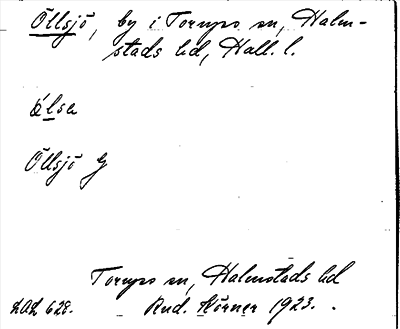 Öllsjö, by i Torups sn, Halm-
stads hd, Hall. l.
ö́lsa
Öllsjö G
Torups sn, Halmstads hd
LAL 628. Rud. Körner 1923.